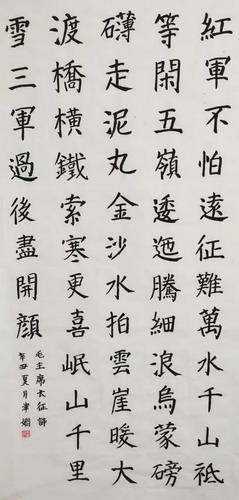 紅軍不怕遠征難萬水千山祗
等閑五嶺逶迤騰細浪烏蒙磅
礴走泥丸金沙水拍雲崖暖大
渡橋橫鐵索寒更喜岷山千里
雪三軍過後盡開顏
毛主席长征詩
辛丑夏月